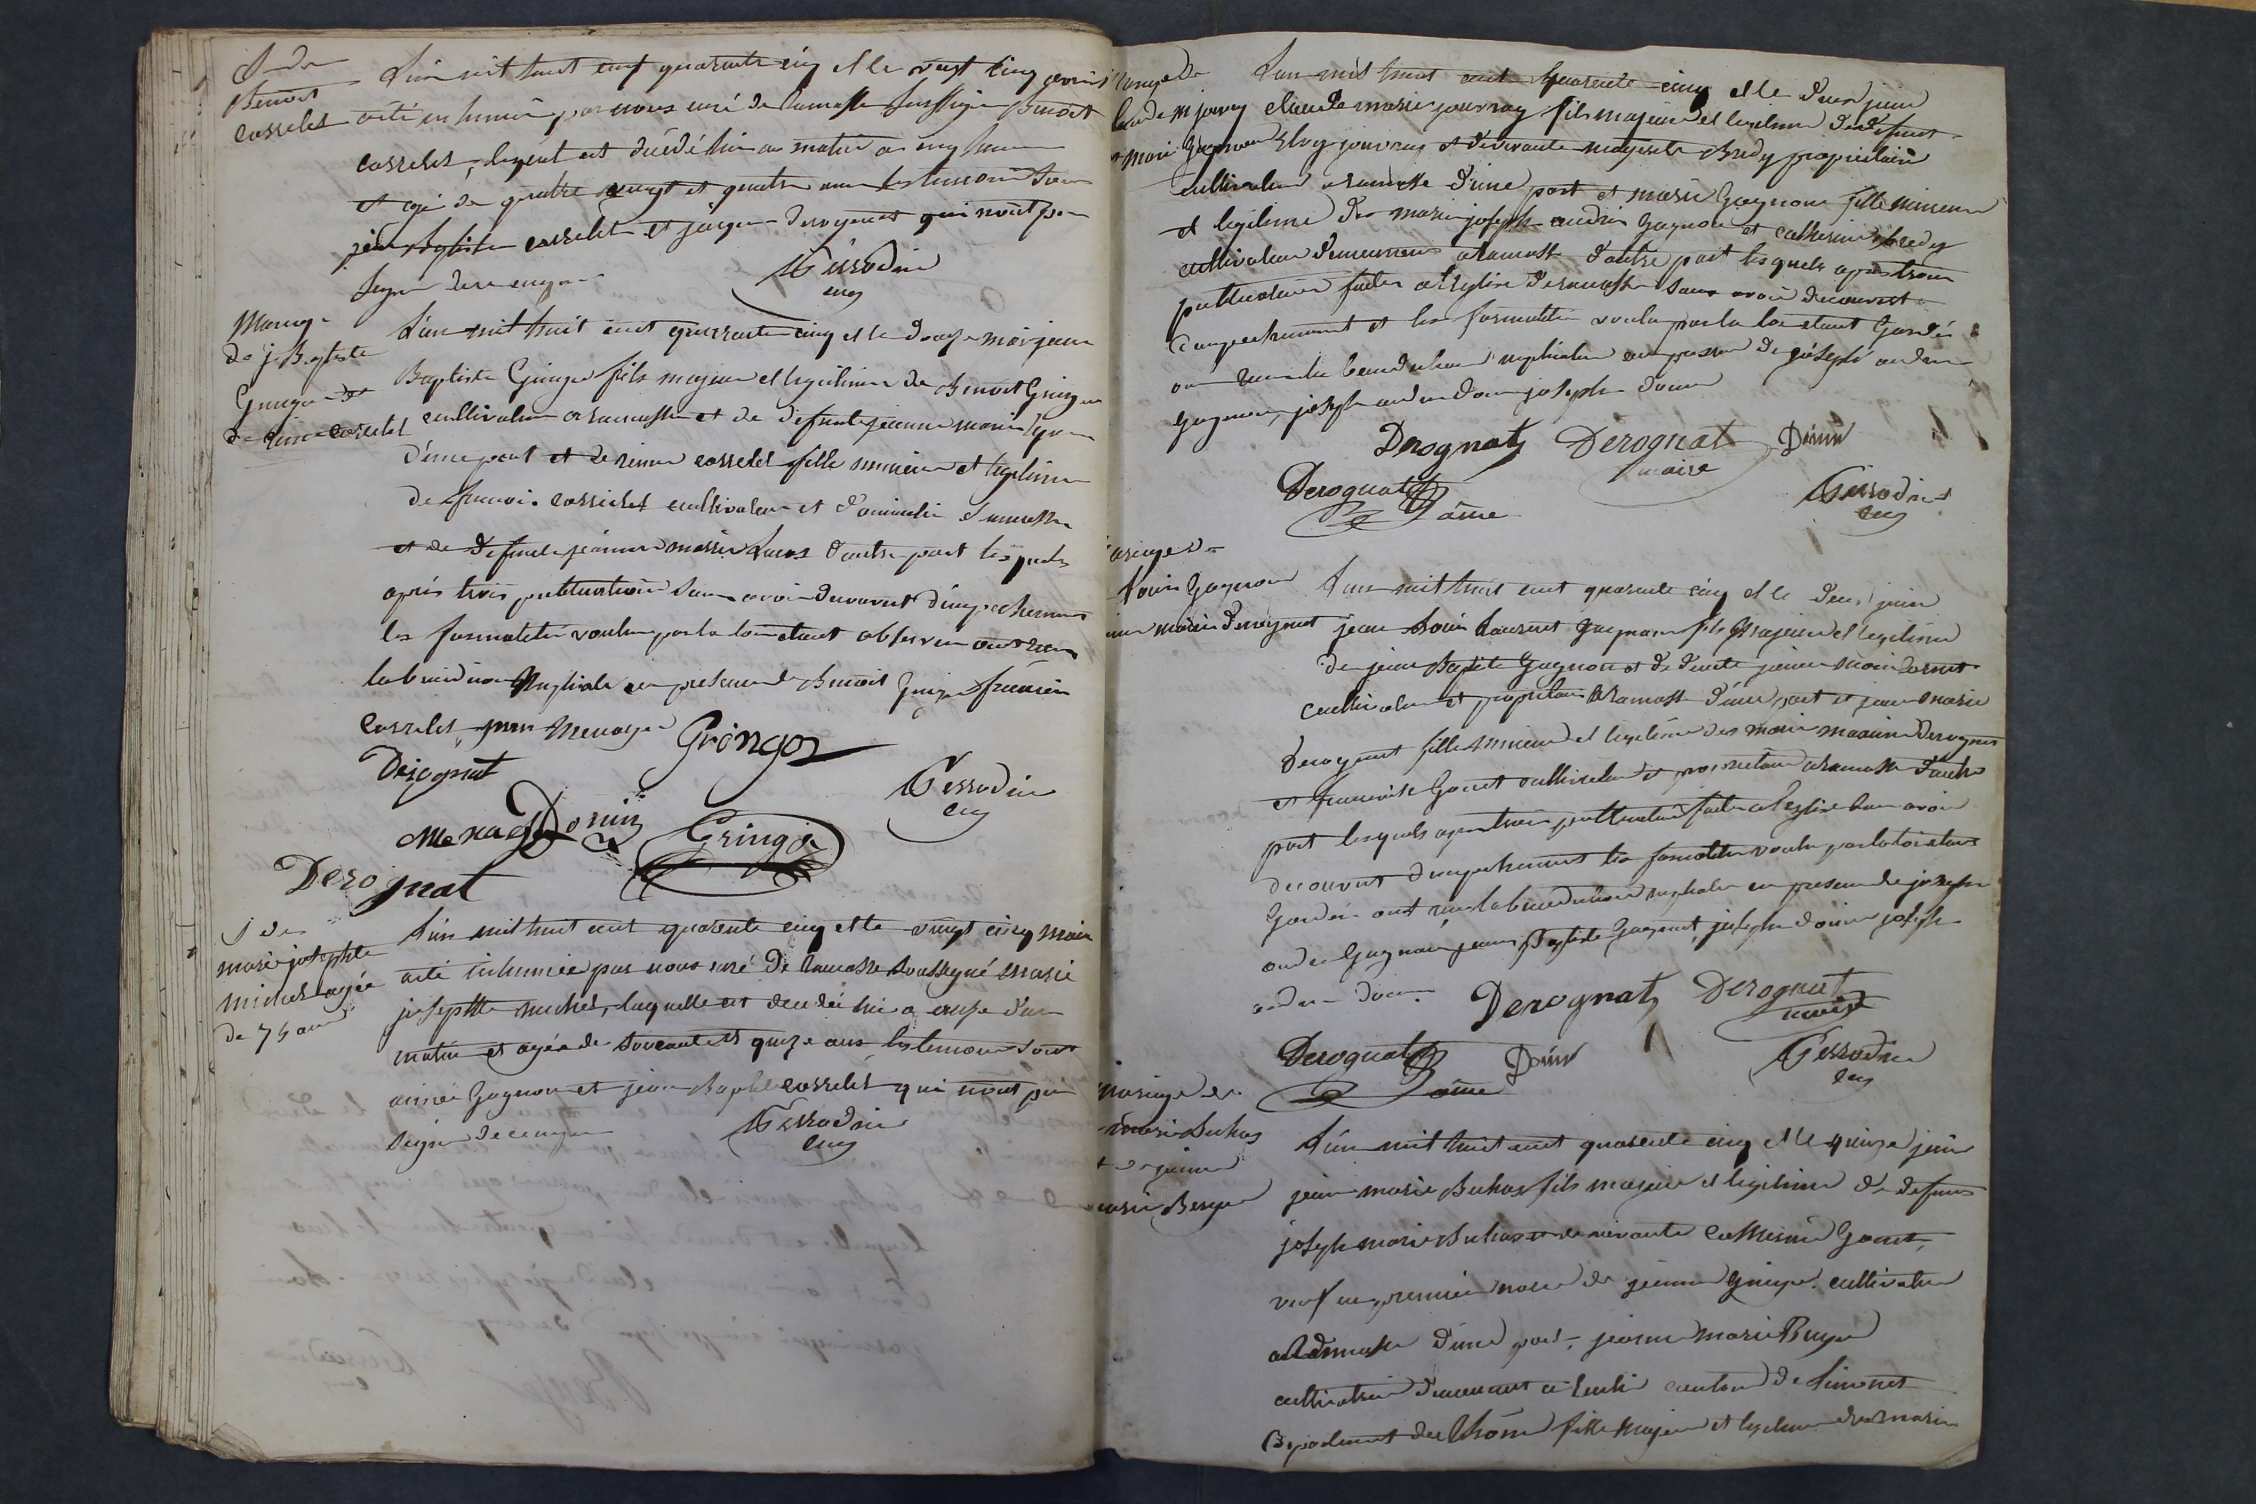 Benoit
Casselet
L'an mil huit cent quarante cinq et le vingt cinq
a été inhumé par nous curé de Ramasse soussigné Benoit
Casselet, lequel est décédé hier au matin a cinq heures
et agé de quatre vingt et quatre ans les temoins sont
jean Baptiste Casselet et jacques Derognat qui n'ont pu
signer de ce enquis
Tissodin
curé
Mariage
de j. Baptiste
Gringoz et
de Casselet
L'an mil huit cent quarante cinq et le douze mai jean
Baptiste Gringoz fils majeur et legitime de Benoit Gringoz
cultivateur a ramasse et de defunte jeanne marie
d'une part et de Casselet fille mineure et legitime
de francois Casselet cultivateur et domicilié a ramasse
et de defunte jeanne marie d'autre part lesquels
après trois publications sans avoir decouvert d'empechement
les formalités voulues par la loi etant observées ont recu
la benediction Nuptiale en presence de Benoit Gringoz francois
Casselet
Gringoz
Derognat
Tissodin
curé
Menage Donin
Gringoz
Derognat
marie josephte
michel agée
de 75 ans
L'an mil huit cent quarante cinq et le vingt cinq mai
a été inhumée par nous curé de Ramasse soussigné marie
josephte michel, laquelle est decedée hier a onze du
matin et agée de soixante et quinze ans les temoins sont
aimé Gagnon et jean Baptiste Casselet qui n'ont pu
signer de ce enquis
Tissodin
curé
mariage de
Claude M jouvray
et marie Gagnon
L'an mil huit cent quarante cinq et le deux juin
claude marie jouvray fils majeur et legitime de defunt
Eloy jouvray et de vivante Bredy propriétaire
cultivateur a ramasse d'une part et marie Gagnon fille mineure
et legitime de marie joseph andré Gagnon et catherine Bredy
cultivateurs demeurant a ramasse d'autre part lesquels après trois
publications faites a l'Eglise de ramasse sans avoir decouvert
d'empechement et les formalités voulues par la loi etant Gardées
ont recu la benediction nuptiale en presence de joseph andré
Gagnon, joseph andré Donin joseph Donin
Derognat Derognat Donin
maire
Derognat
Côme
Tissodin
curé
mariage de
Louis Gagnon
marie Derognat
L'an mil huit cent quarante cinq et le deux juin
jean Louis Laurent Gagnon fils Majeur et legitime
de jean Baptiste Gagnon et de jeanne marie
cultivateur et proprietaire a ramasse d'une part et jeanne marie
Derognat fille mineure et legitime de marie Derognat
et francoise Goiret cultivateurs et proprietaires a ramasse d'autre
part lesquels après trois publications faites a l'eglise sans avoir
decouvert d'empechement les formalités voulues par la loi etant
Gardées ont recu la benediction nuptiale en presence de joseph
andré Gagnon jean Baptiste Gagnon, joseph Donin joseph
andré Donin
Derognat Derognat
maire
Derognat Donin
Côme
Tissodin
curé
mariage de
marie Buhas
et de jeanne
marie
L'an mil huit cent quarante cinq et le quinze juin
jean marie Buhas fils majeur et legitime de defunt
joseph marie Buhas et de vivante Catherine Goiret,
veuf en premiere noce de jeanne Gringoz cultivateur
a Ramasse d'une part, jeanne marie
cultivatrice demeurant a canton de Limonest
Departement du Rhône fille majeure et legitime de marie